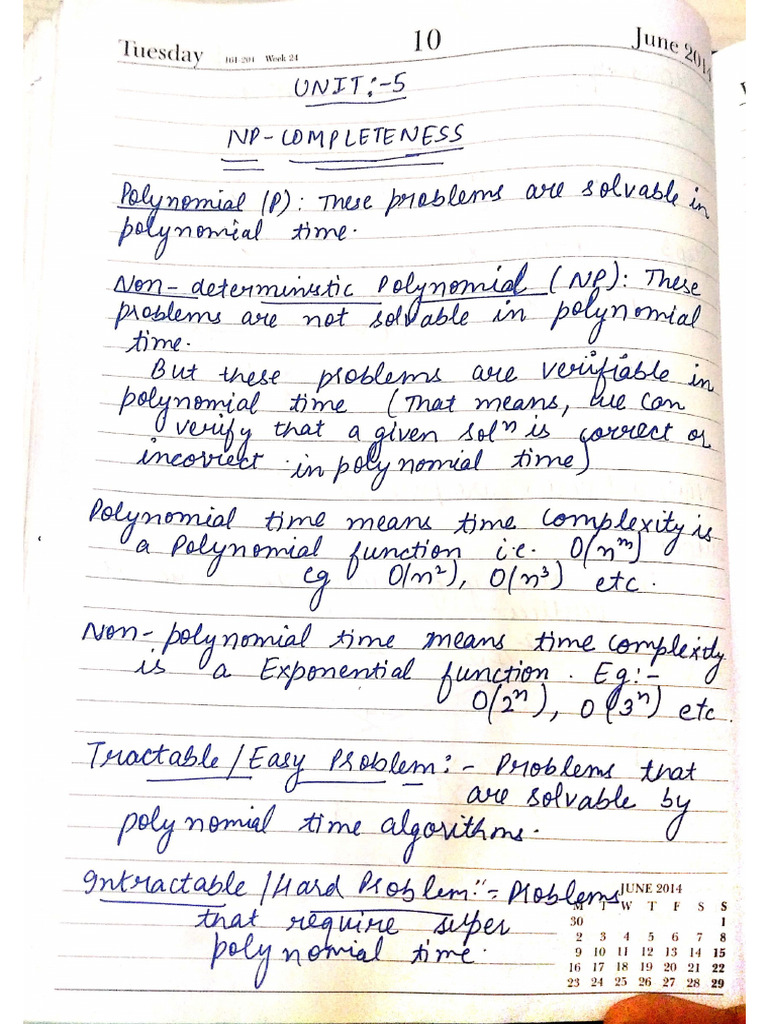 Tuesday 161-204 Week 24 10 June 2014
UNIT:-5
NP-COMPLETENESS
Polynomial (P): These problems are solvable in
polynomial time.
Non-deterministic Polynomial (NP): These
problems are not solvable in polynomial
time.
But these problems are verifiable in
polynomial time (That means, we can
verify that a given solⁿ is correct or
incorrect in polynomial time)
Polynomial time means time complexity is
a Polynomial function i.e. O(n^m)
eg O(n²), O(n³) etc.
Non-polynomial time means time complexity
is a Exponential function. Eg:-
O(2ⁿ), O(3ⁿ) etc.
Tractable/Easy Problem:- Problems that
are solvable by
polynomial time algorithms.
Intractable/Hard Problem:- Problems
that require super
polynomial time.
JUNE 2014
M T W T F S S
30 1
2 3 4 5 6 7 8
9 10 11 12 13 14 15
16 17 18 19 20 21 22
23 24 25 26 27 28 29